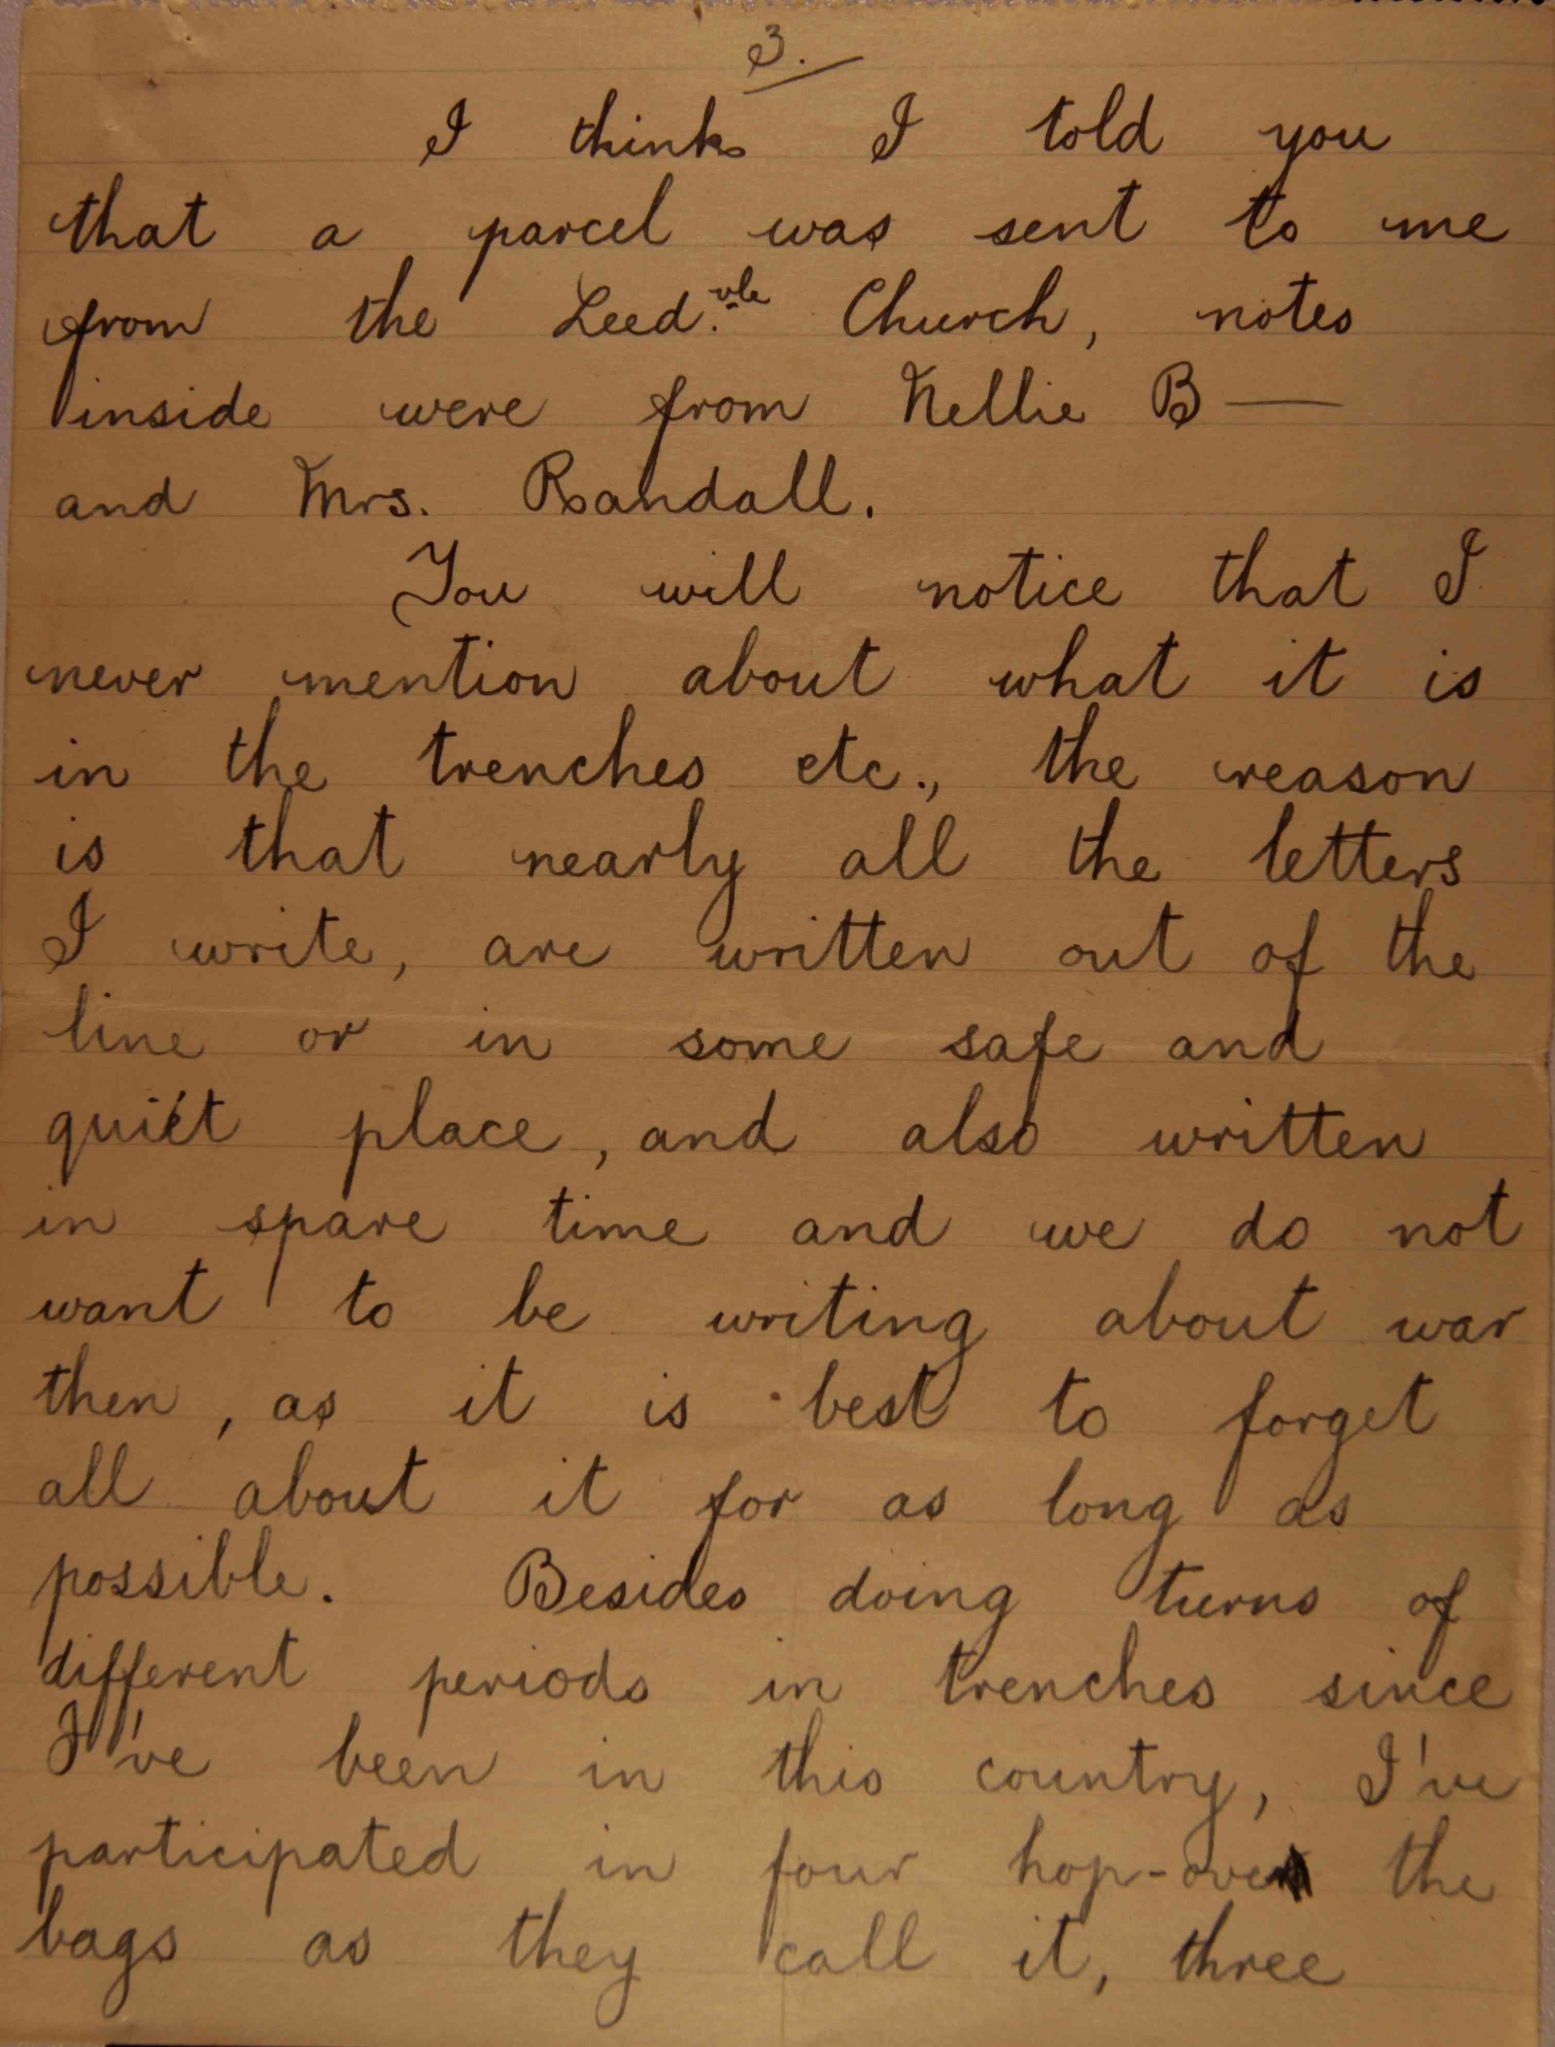 3.
I think I told you
that a parcel was sent to me
from the Leed.vle Church, notes
inside were from Nellie B—
and Mrs. Randall.
You will notice that I
never mention about what it is
in the trenches etc., the reason
is that nearly all the letters
I write, are written out of the
line or in some safe and
quiet place, and also written
in spare time and we do not
want to be writing about war
then, as it is best to forget
all about it for as long as
possible. Besides doing turns of
different periods in trenches since
I've been in this country, I've
participated in four hop-overs the
bags as they call it, three